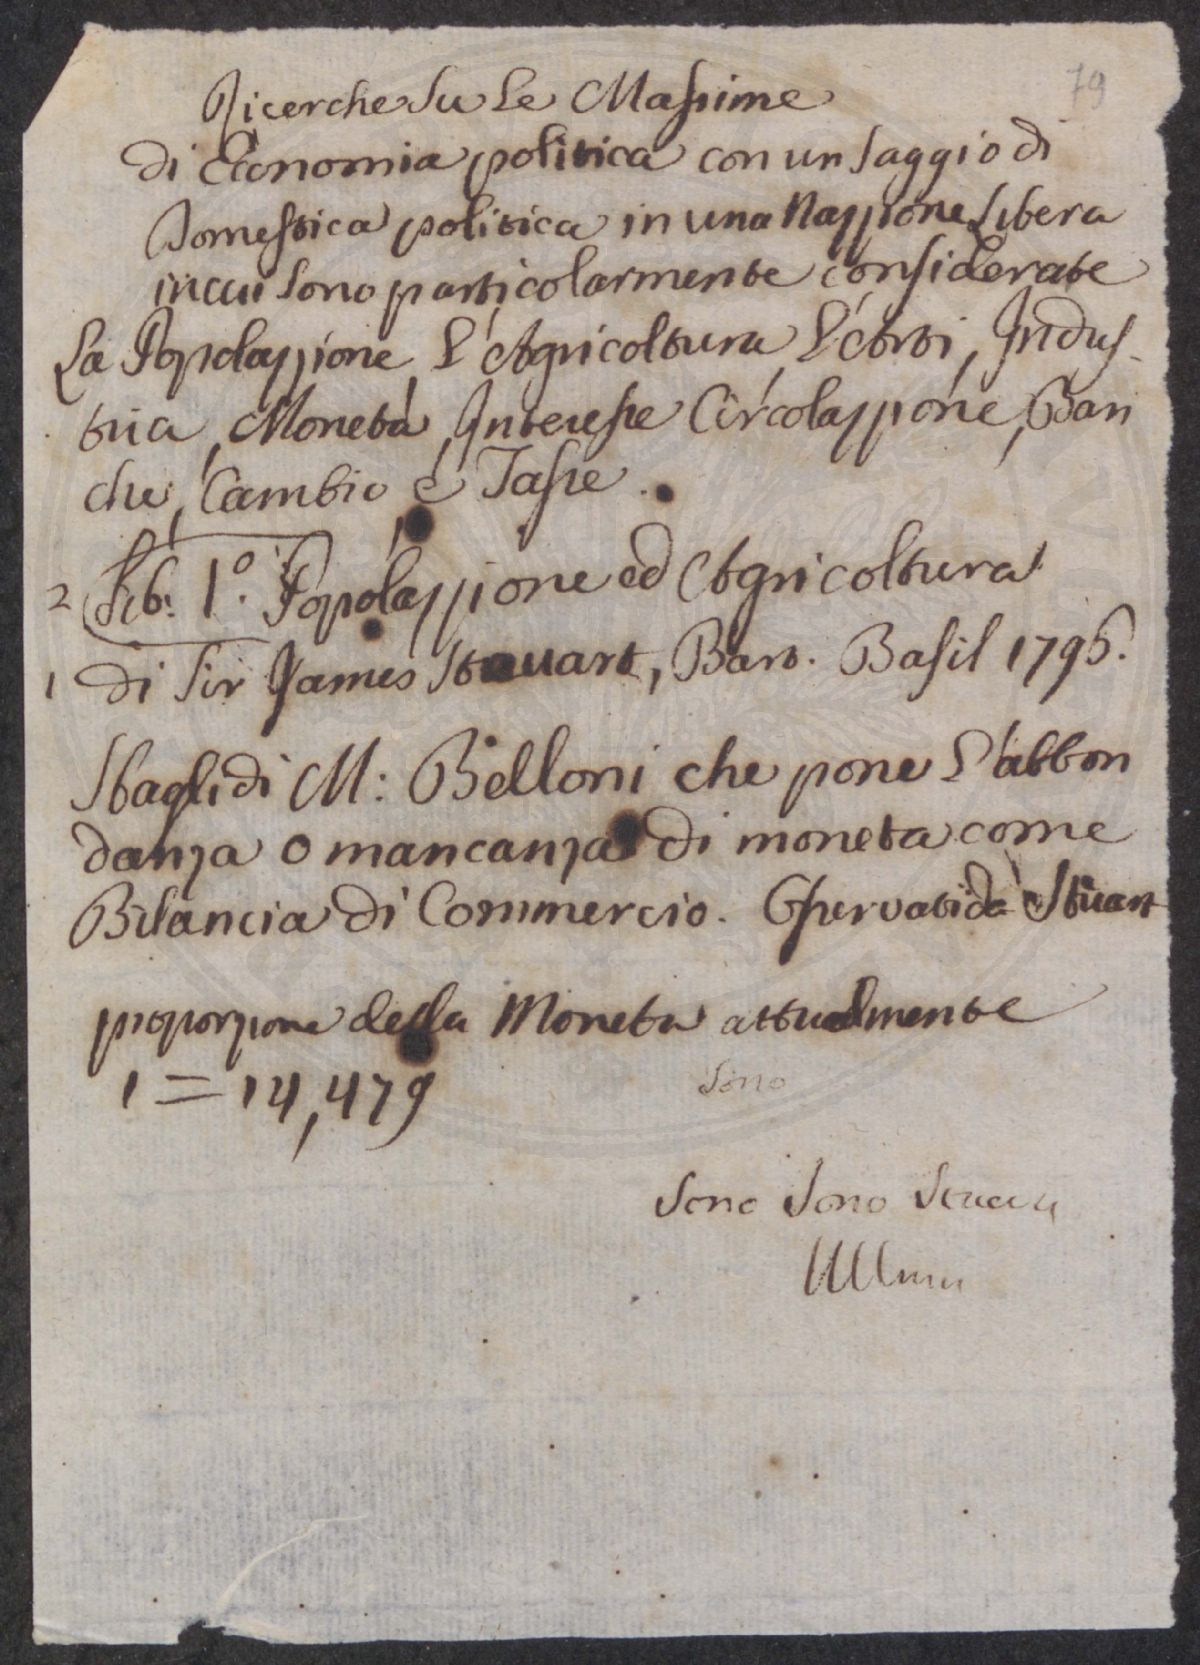 79
Ricerche Su Le Massime
di Economia politica con un Saggio di
Domestica politica in una Nazzione Libera
in cui Sono particolarmente considerate
La Popolazzione, L'Agricoltura, L'Arti, Indus-
tria, Moneta, Interesse Circolazzione, Ban
che, Cambio, e Tasse.
2 Lib. 1°. Popolazzione ed Agricoltura
1 di Sir James Steuart, Bart. Basil 1796.
Sbagli di M: Belloni che pone L'abbon
danza o mancanza di moneta come
Bilancia di Commercio. Osservati da Stuart
proporzione della Moneta attualmente
1 = 14,479
Sono
Sono Sono